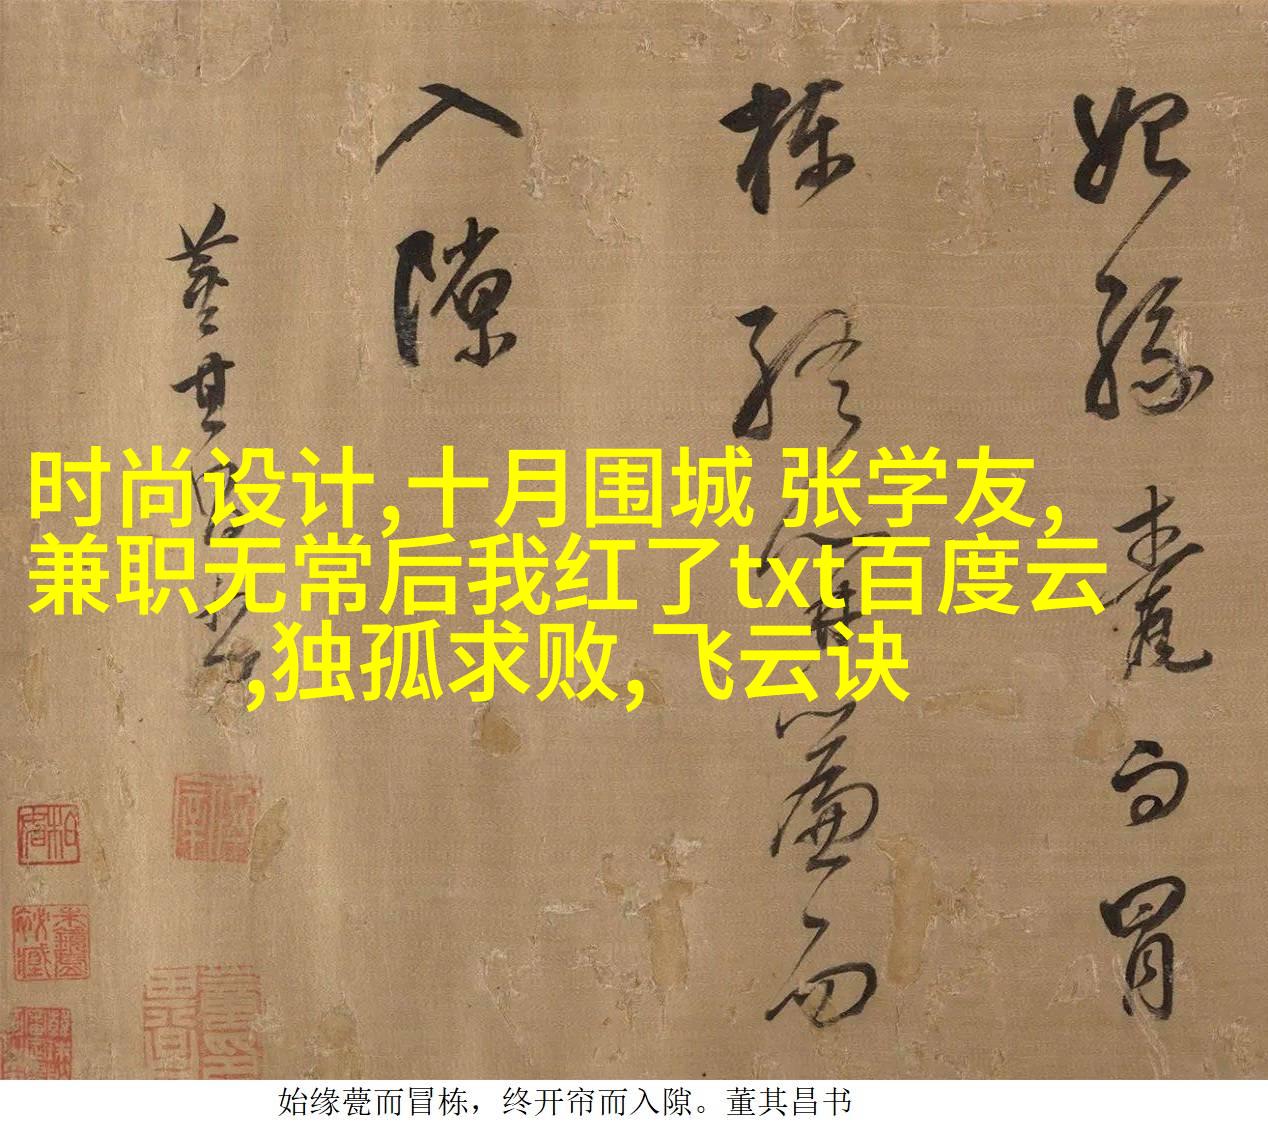 始緣甍而冒
棟終開簾而
入隙
董其昌書
时尚设计,十月围城 张学友,
兼职无常后我红了txt百度云
,独孤求败, 飞云诀
始缘甍而冒栋，终开帘而入隙。董其昌书